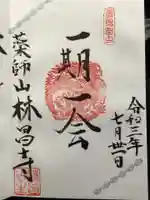 令和三年
七月廿一日
一期一会
薬師山林昌寺